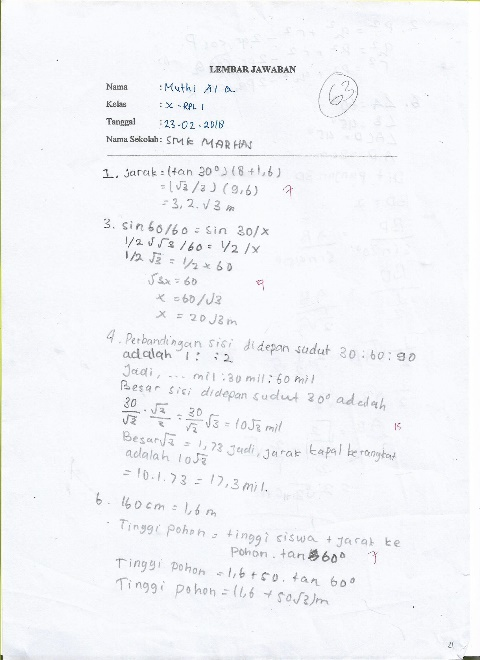 LEMBAR JAWABAN
63
Nama : Muthi Al a
Kelas : X - RPL 1
Tanggal : 23-02-2018
Nama Sekolah : SMK MARHAS
1. Jarak = (tan 30°) (8 + 1,6)
= (√3/3) (9,6) 7
= 3,2.√3 m
3. sin 60/60 = sin 30/x
1/2 √√3/60 = 1/2/x
1/2 √3 = 1/2 x 60
√3x = 60
x = 60/√3
x = 20√3 m
4. Perbandingan sisi didepan sudut 30 : 60 : 90
adalah 1 : : 2
Jadi, ... mil : 30 mil : 60 mil
Besar sisi didepan sudut 30° adalah
30/√3 . √3/3 = 30/√3 √3 = 10√3 mil
15
Besar √3 = 1,73 jadi, jarak kapal berangkat
adalah 10√3
= 10.1.73 = 17,3 mil.
6. 160 cm = 1,6 m
Tinggi pohon = tinggi siswa + jarak ke
pohon. tan 60°
Tinggi pohon = 1,6 + 50. tan 60°
Tinggi pohon = (1,6 + 50√3)m
21